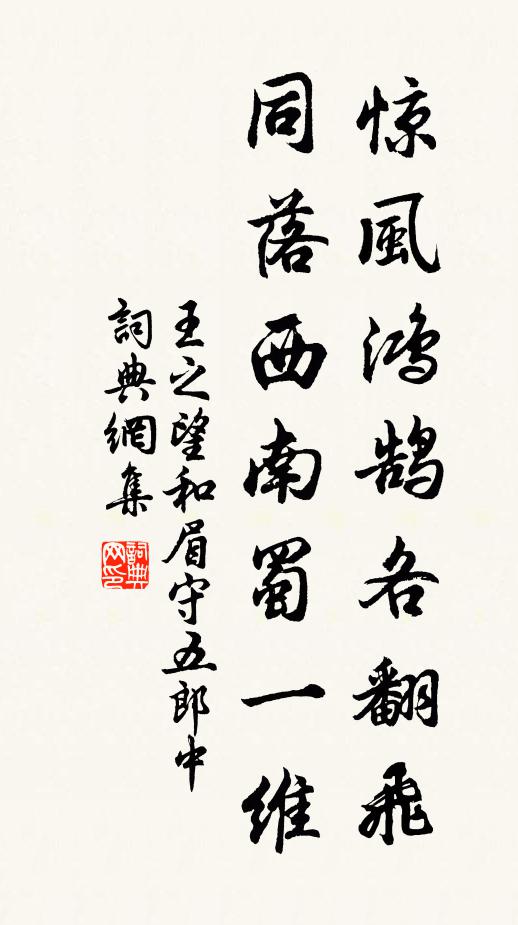 惊風鴻鹄各翻飛
同落西南蜀一維
王之望和眉守五郎中
詞典網集
詞典网印